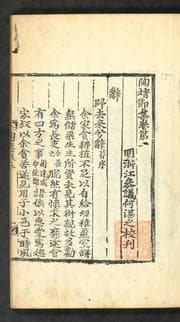 陶靖節集卷第一
明浙江叅議何湛之校刋
辭
歸去來兮辭并序
余家貧耕植不足以自給幼稚盈室缾
無儲粟生生所資未見其術親故多勸
余為長吏脫然有懷求之靡途會
有四方之事諸侯以惠愛為德
家叔以余貧苦遂見用于小邑于時風